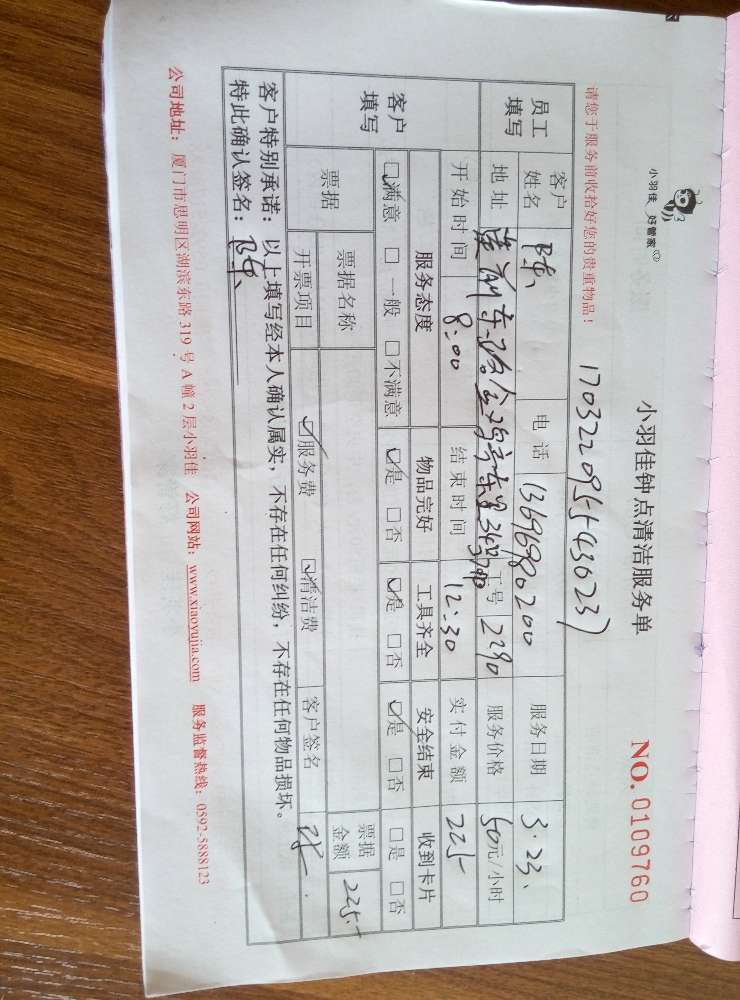 小羽佳 好管家
小羽佳钟点清洁服务单
NO. 0109760
请您于服务前收拾好您的贵重物品!
1703220955436237
员工填写 客户姓名 陈 电话 13696980200 服务日期 3.23、
地址 莲前东路 工号 2290 服务价格 50元/小时
开始时间 8:00 结束时间 12:30 实付金额 225
客户填写 服务态度 物品完好 工具齐全 安全结束 收到卡片
☑满意 □一般 □不满意 ☑是 □否 ☑是 □否 ☑是 □否 □是 □否
票据 票据名称 票据金额 225.-
开票项目 ☑服务费 ☑清洁费 客户签名
客户特别承诺: 以上填写经本人确认属实,不存在任何纠纷,不存在任何物品损坏。
特此确认签名: 陈
公司地址: 厦门市思明区湖滨东路 319 号 A 幢 2 层小羽佳 公司网站: www.xiaoyujia.com 服务监督热线: 0592-5888123